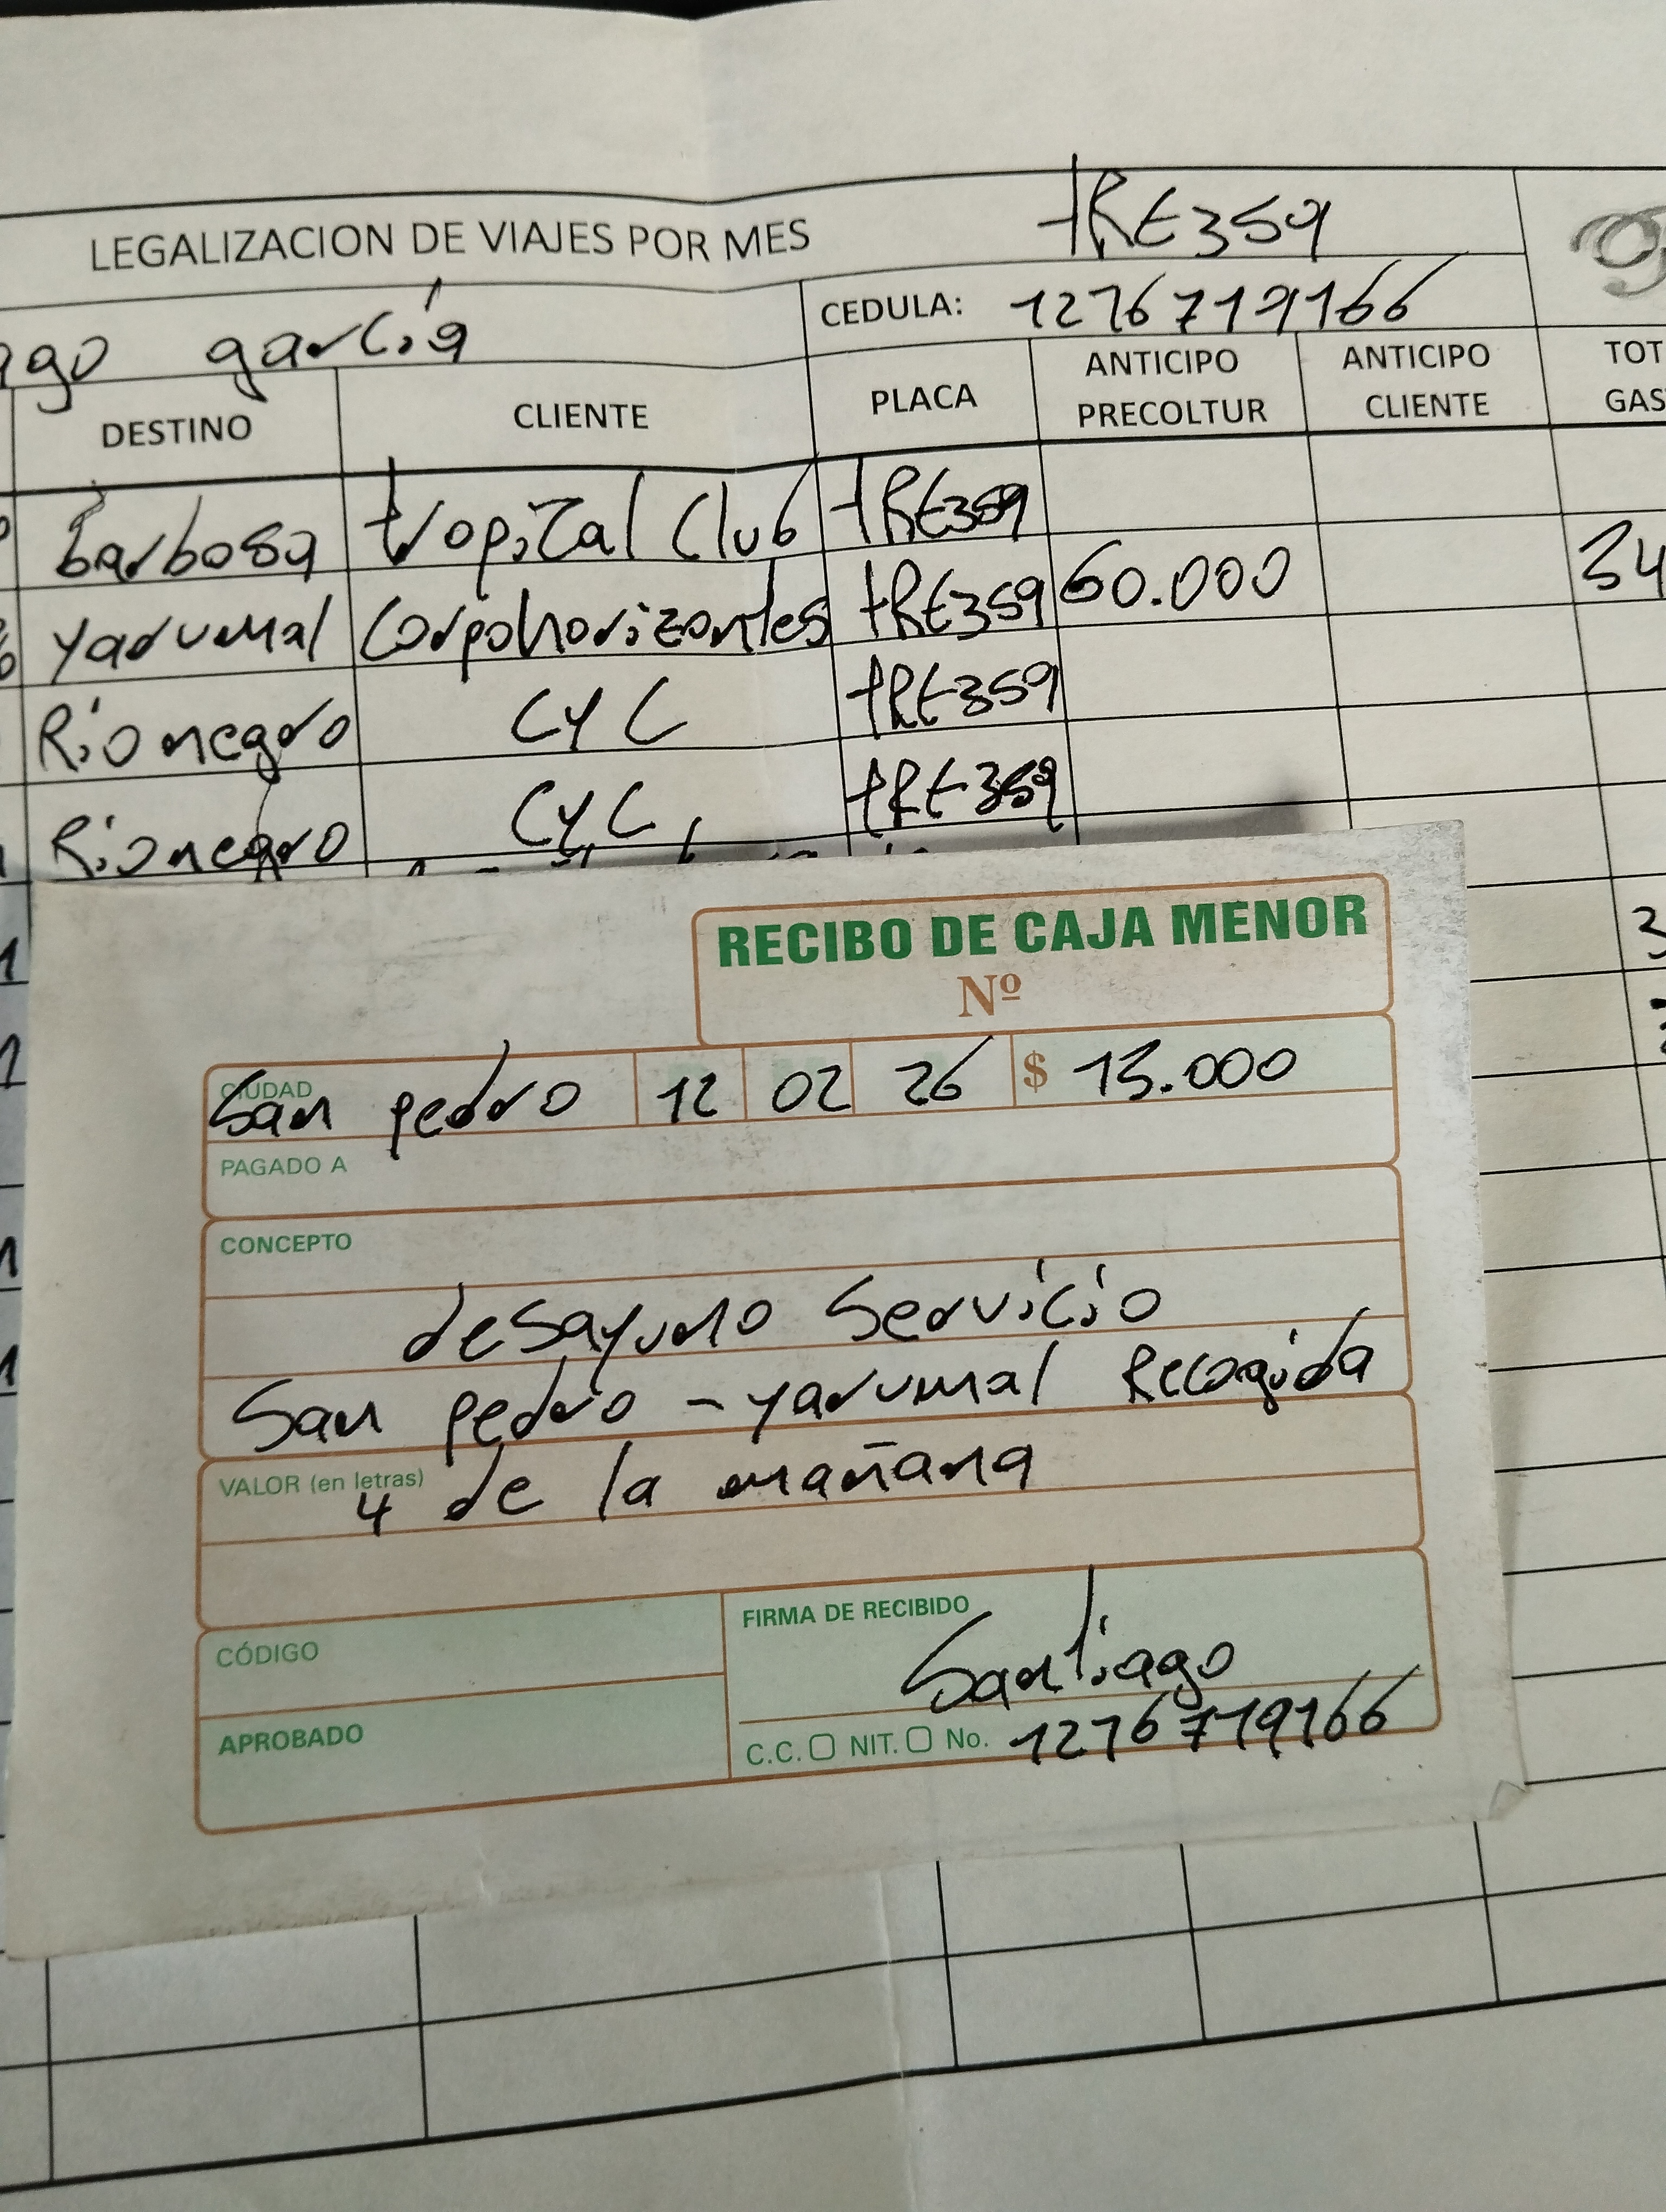 LEGALIZACION DE VIAJES POR MES tRE359
ago garcía CEDULA: 1276719166
DESTINO CLIENTE PLACA ANTICIPO PRECOLTUR ANTICIPO CLIENTE TOT GAS
Barbosa tropical Club tRE359
yarumal Corpohorizontes tRE359 60.000 34
Rionegro CYC tRE359
Rionegro CYC tRE359
RECIBO DE CAJA MENOR
Nº
CIUDAD San pedro 12 02 26 $ 15.000
PAGADO A
CONCEPTO
desayuno Servicio
San pedro - yarumal Recogida
VALOR (en letras) 4 de la mañana
CÓDIGO
FIRMA DE RECIBIDO Santiago
APROBADO
C.C. NIT. No. 1276719166